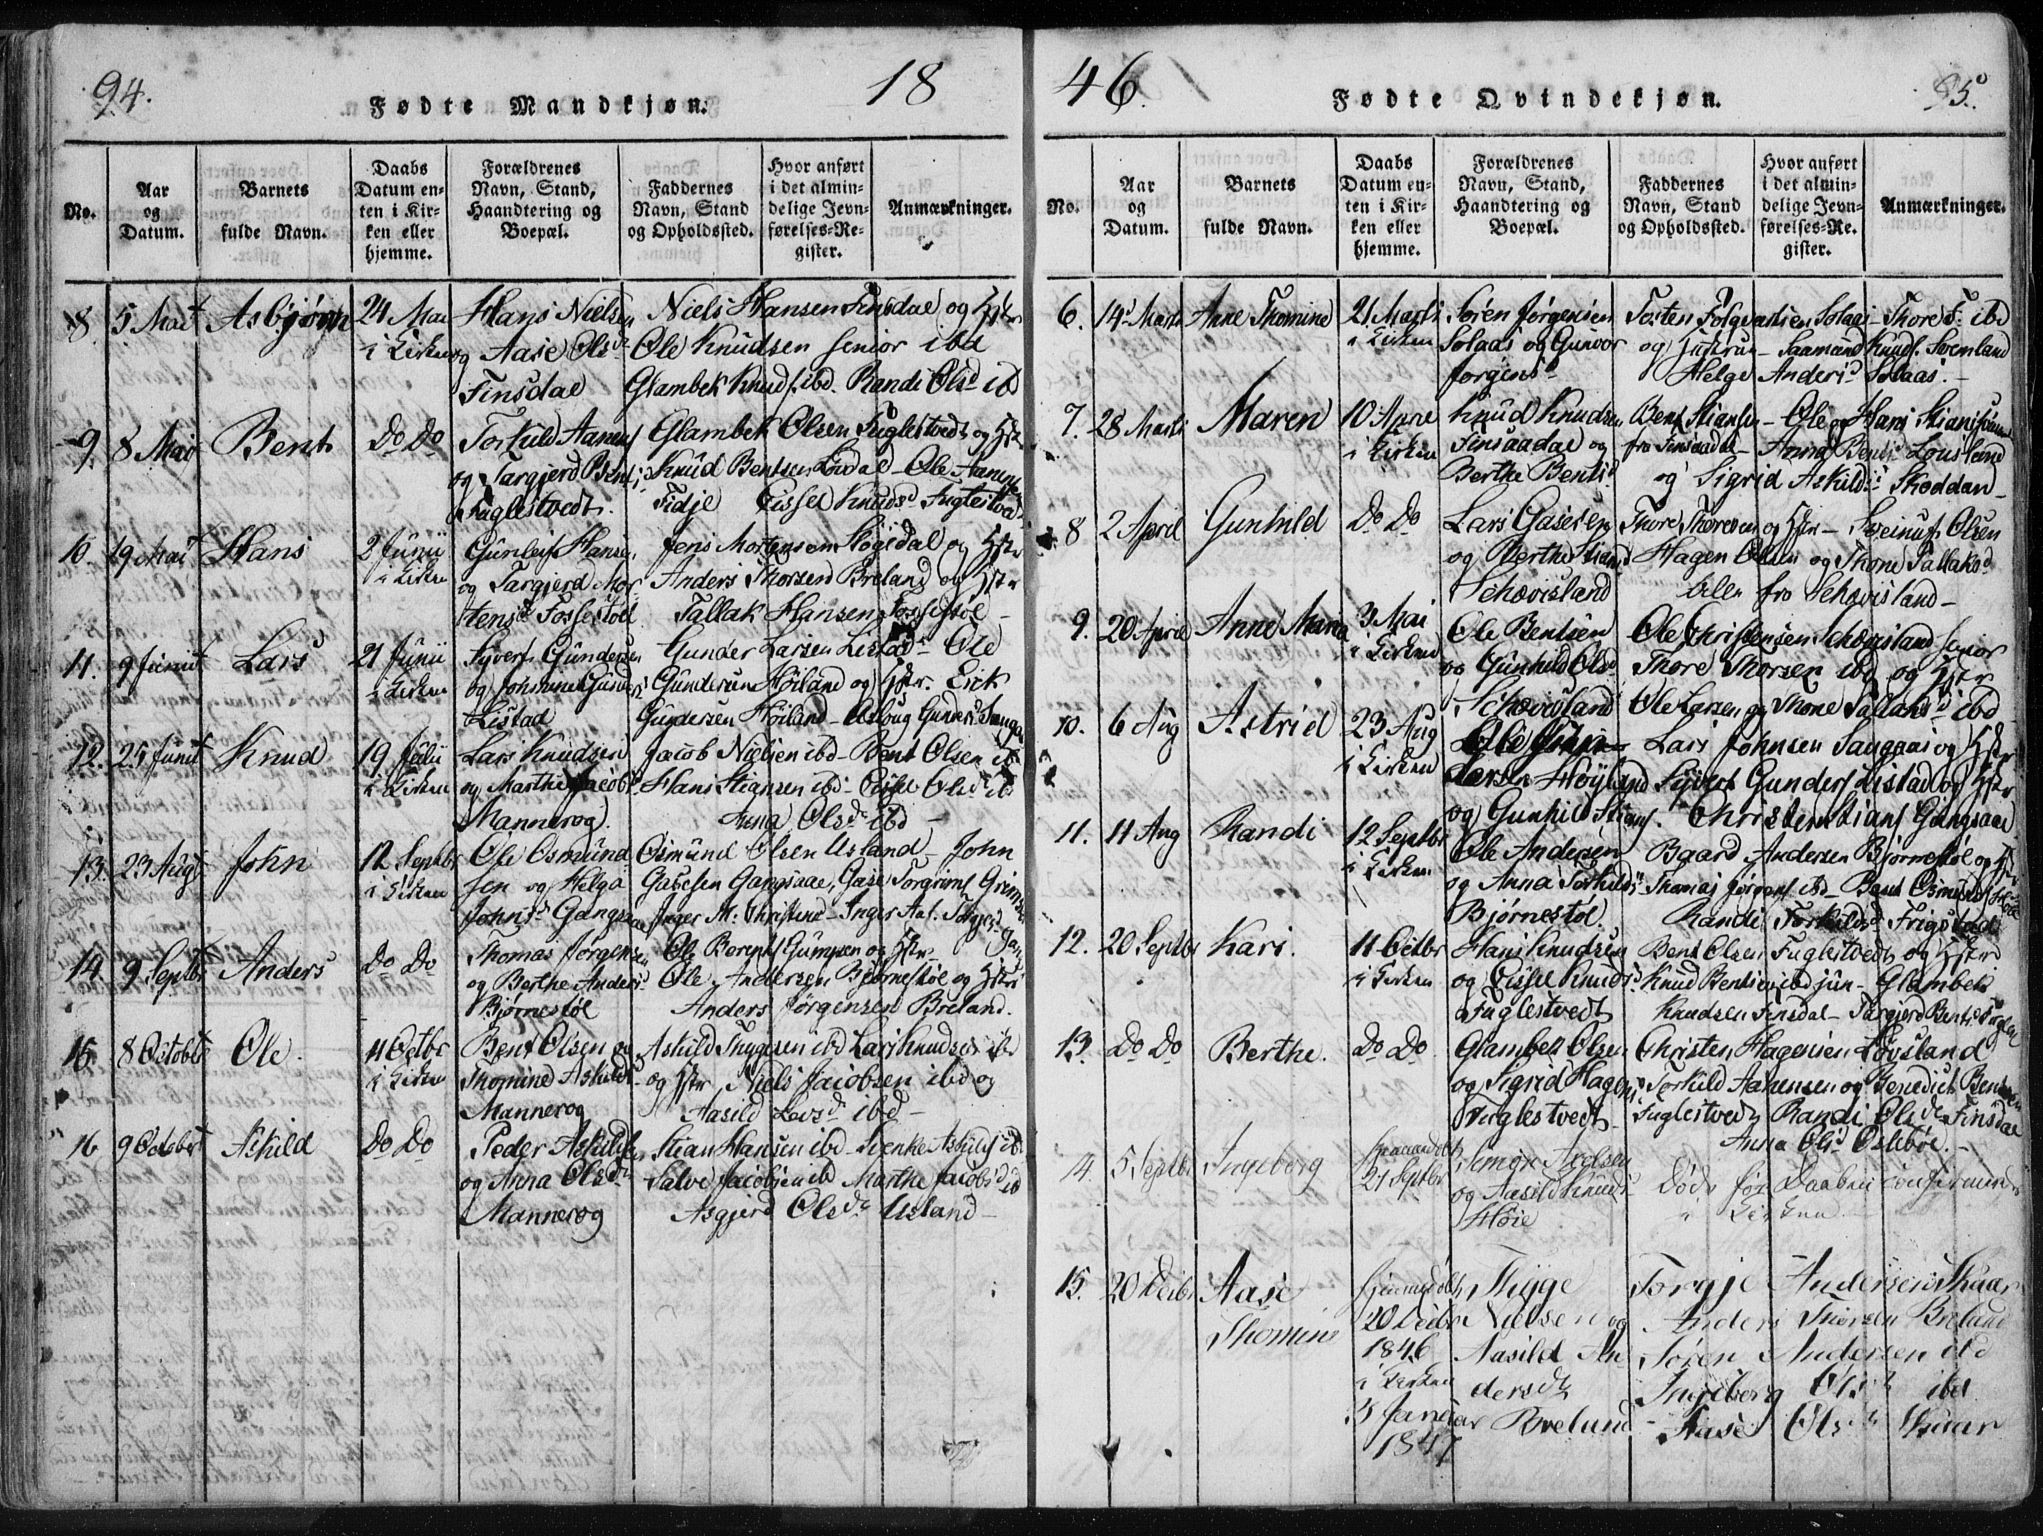 94.
18
Fødte Mandkjøn.
No.
Aar og Datum.
Barnets fulde Navn.
Daabs Datum enten i Kirken eller hjemme.
Forældrenes Navn, Stand, Haandtering og Boepæl.
Faddernes Navn, Stand og Opholdssted.
Hvor anført i det almindelige Jevnførelses-Register.
Anmærkninger.
8. 5 Mai Asbjørn 24 Mai Hans Nielsen Niels Hansen Finsdal og Hstr
i Kirken og Aase Olsd Ole Knudsen senior ibd
Finsdal Glambek Knuds. ibd. Randi Olsd ibd
9. 8 Mai Bent Do Do Torkild Aanens Glambek Olsen Fuglestvedt og Hstr
og Targjerd Bents Knud Bentsen Ole Aanens
Fuglestvedt. Fidje Sissel Knudsd Fuglestvedt
10. 19 Mai Hans 2 Junii Gunleif Hansen Jens Mortensen Høgsdal og Hstr
i Kirken og Targjerd Mor Anders Thorsen Breland og Hstr
tensd Fossestøl Tallak Hansen Fossestøl
11. 9 Junii Lars 21 Junii Syvert Gundersen Gunder Larsen Listad Ole
i Kirken og Johanne Gunders Gundersen Høiland og Hstr. Erik
Listad Gundersen Høiland Aslaug Gunders
12. 25 Junii Knud 19 Julii Lars Knudsen Jacob Nielsen ibd Bent Olsen ibd
i Kirken og Marthe Jacobs Hans Stiansen ibd Sissel Olsd ibd
Mannerog. Anna Olsd ibd
13. 23 Aug John 12 Septbr Ole Osmund Osmund Olsen Usland John
i Kirken sen og Helga Gabesen Gangsaae, Gase Torgrims
Johnsd Gangsaae Inger M. Christine Inger
14. 9 Septbr Anders Do Do Thomas Jørgensen Ole Berents og Hstr
og Berthe Anders Ole Andersen Bjørnestøl og Hstr
Bjørnestøl Anders Jørgensen Breland.
15. 8 October Ole. 11 Octbr Bent Olsen og Askild Thygesen ibd Lars Knudsen ibd
i Kirken Thomine Askilds og Hstr Niels Jacobsen ibd og
Mannerog Aasild Larsd ibd
16 9 October Askild Do Do Peder Askilds Stian Hansen ibd Askilds ibd
og Anna Olsd Salve Jacobsen ibd Marthe Jacobsd ibd
Mannerog Asgjerd Olsd Usland
46.
95.
Fødte Qvindekjøn.
No.
Aar og Datum.
Barnets fulde Navn.
Daabs Datum enten i Kirken eller hjemme.
Forældrenes Navn, Stand, Haandtering og Boepæl.
Faddernes Navn, Stand og Opholdssted.
Hvor anført i det almindelige Jevnførelses-Register.
Anmærkninger.
6. 14 Marts Anne Thomine 21 Marts Søren Jørgensen Tosten Solaas Thore T. ibd
i Kirken Solaas og Gunvor og Saamund Knuds.
Jørgensd Helge Andersd Solaas.
7. 28 Marts Maren 10 April Knud Knudsen Bent Stiansen Ole og Hans
i Kirken Finsaadal og fra Finsaadal Anna Bents
Berthe Bentsd og Sigrid Askildsd
8 2 April Gunhild Do Do Lars Gasesen Thore Thoresen og Hstr Olsen
og Berthe Stians Hagen Olsen og Thone Tallaksd
Schævisland alle fra Schævisland
9. 20 April Anne Maria 3 Mai Ole Bentsen Ole Christensen Schævisland senior
i Kirken og Gunhild Olsd Thore Thorsen ibd og Hstr
Schævisland Ole Larsen og Thone ibd
10. 6 Aug Astrid 23 Aug Ole Gun Lars Johnsen Saugaas og Hstr
i Kirken dersen Høyland Syvert Gunders Listad og Hstr
og Gunhild Stians. Christen Stians Gangsaae
11. 11 Aug Randi 12 Septbr Ole Andersen Baard Andersen Bjørnestøl og Hstr
i Kirken og Anna Torkilds Thomas Jørgens ibd Bent Osmunds
Bjørnestøl. Randi Torkildsd Frigstad
12. 20 Septbr Kari. 11 Octbr Hans Knudsen Bent Olsen Fuglestvedt og Hstr
i Kirken og Sissel Knuds Knud Bentsen ibd jun Glambek
Fuglestvedt Knudsen Finsdal Targjerd Bents
13. Do Do Berthe. Do Do Glambek Olsen Christen Hagensen Løvsland
og Sigrid Hagens Torkild Aanensen og Benedict Bentsen
Fuglestvedt Fuglestvedt Randi Olsd Finsdal
Anna Olsd
14. 5 Septbr Ingeborg hjemmedøbt Simon Axelsen
21 Septbr og Aasild Knuds Døde før Daaben confirmeredes
Høie i Kirken
15. 20 Decbr Aase hjemmedøbt Thyge Torgje Andersen
Thomine 20 Decbr Nielsen og Anders Thorsen Breland
1846 Aasild An Søren Andersen ibd
i Kirken dersdt Ingeborg Olsd ibd
3 Januar Breland Aase Olsd
1847